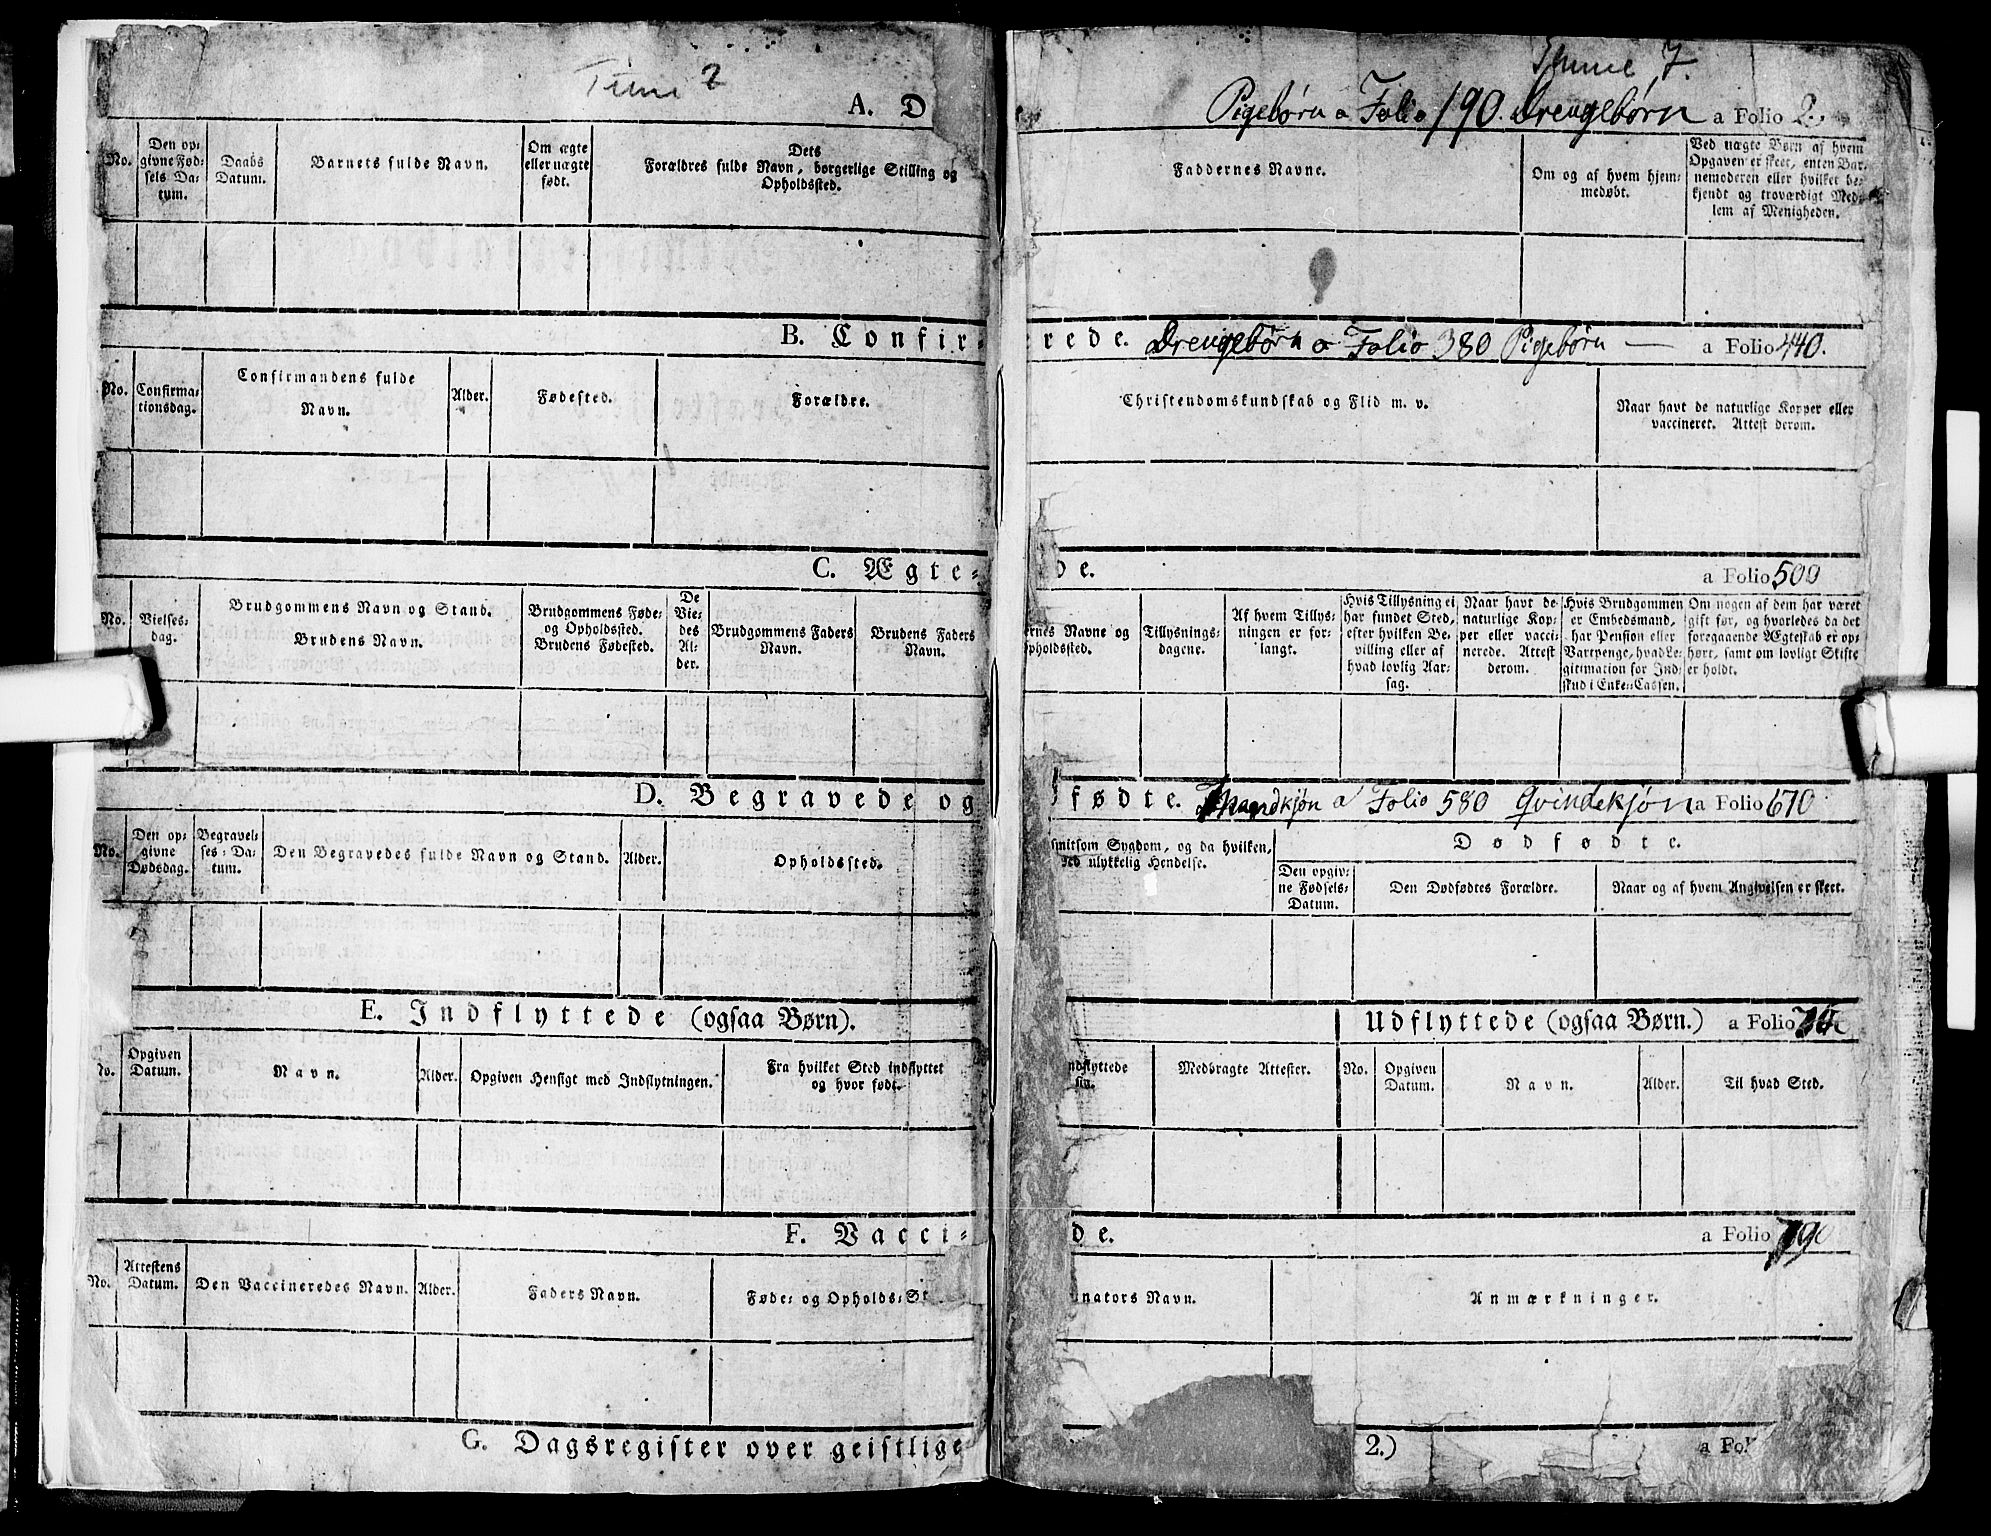 Tune 7
Tune 7.
A. D
Pigebørn a Folio 190. Drengebørn a Folio 2.
No.
Den op-
givne Fød-
sels Da-
tum.
Daabs
Datum.
Barnets fulde Navn.
Om ægte
eller uægte
født.
Dets
Forældres fulde Navn, borgerlige Stilling og
Opholdssted.
Faddernes Navne.
Om og af hvem hjem-
medøbt.
Ved uægte Børn af hvem
Opgaven er skeet, enten Bar-
nemoderen eller hvilket be-
kjendt og troværdigt Med-
lem af Menigheden.
B. Confir-
erede. Drengebørn a Folio 380 Pigebørn — a Folio 440.
No.
Confirma-
tionsdag.
Confirmandens fulde
Navn.
Alder.
Fødested.
Forældre.
Christendomskundskab og Flid m. v.
Naar havt de naturlige Kopper eller
vaccineret. Attest derom.
C. Ægte-
de. a Folio 500
No.
Vielses-
dag.
Brudgommens Navn og Stand.
Brudens Navn.
Brudgommens Føde-
og Opholdssted.
Brudens Fødested.
De
Vie-
des
Al-
der.
Brudgommens Faders
Navn.
Brudens Faders
Navn.
ernes Navne og
pholdssted.
Tillysnings-
dagene.
Af hvem Tillys-
ningen er for-
langt.
Hvis Tillysning ei
har fundet Sted,
efter hvilken Be-
villing eller af
hvad lovlig Aar-
sag.
Naar havt de
naturlige Kop-
per eller vacci-
nerede. Attest
derom.
Hvis Brudgommen
er Embedsmand,
har Pension eller
Vartpenge, hvad Le-
gitimation for Ind-
skud i Enke-Cassen.
Om nogen af dem har været
gift før, og hvorledes da det
foregaaende Ægteskab er op-
hørt, samt om lovligt Skifte
er holdt.
D. Begravede og
fødte. Mandkjøn a Folio 580 Qvindekjøn a Folio 670
No.
Den op-
givne
Dødsdag.
Begravel-
ses-Da-
tum.
Den Begravedes fulde Navn og Stand.
Alder.
Opholdssted.
smitsom Sygdom, og da hvilken,
ved ulykkelig Hendelse.
Dødfødte.
Den opgiv-
ne Fødsels-
Datum.
Den Dødfødtes Forældre.
Naar og af hvem Angivelsen er skeet.
E. Indflyttede (ogsaa Børn).
Udflyttede (ogsaa Børn.) a Folio
No.
Opgiven
Datum.
Navn.
Alder.
Opgiven Hensigt med Indflytningen.
Fra hvilket Sted indflyttet
og hvor født.
ndflyttede
Medbragte Attester.
No.
Opgiven
Datum.
Navn.
Alder.
Til hvad Sted.
F. Vacci-
de. a Folio 790
No.
Attestens
Datum.
Den Vaccineredes Navn.
Alder.
Faders Navn.
Føde- og Opholds-St
nators Navn.
Anmærkninger.
G. Dagsregister over geistlige
2.) a Fol